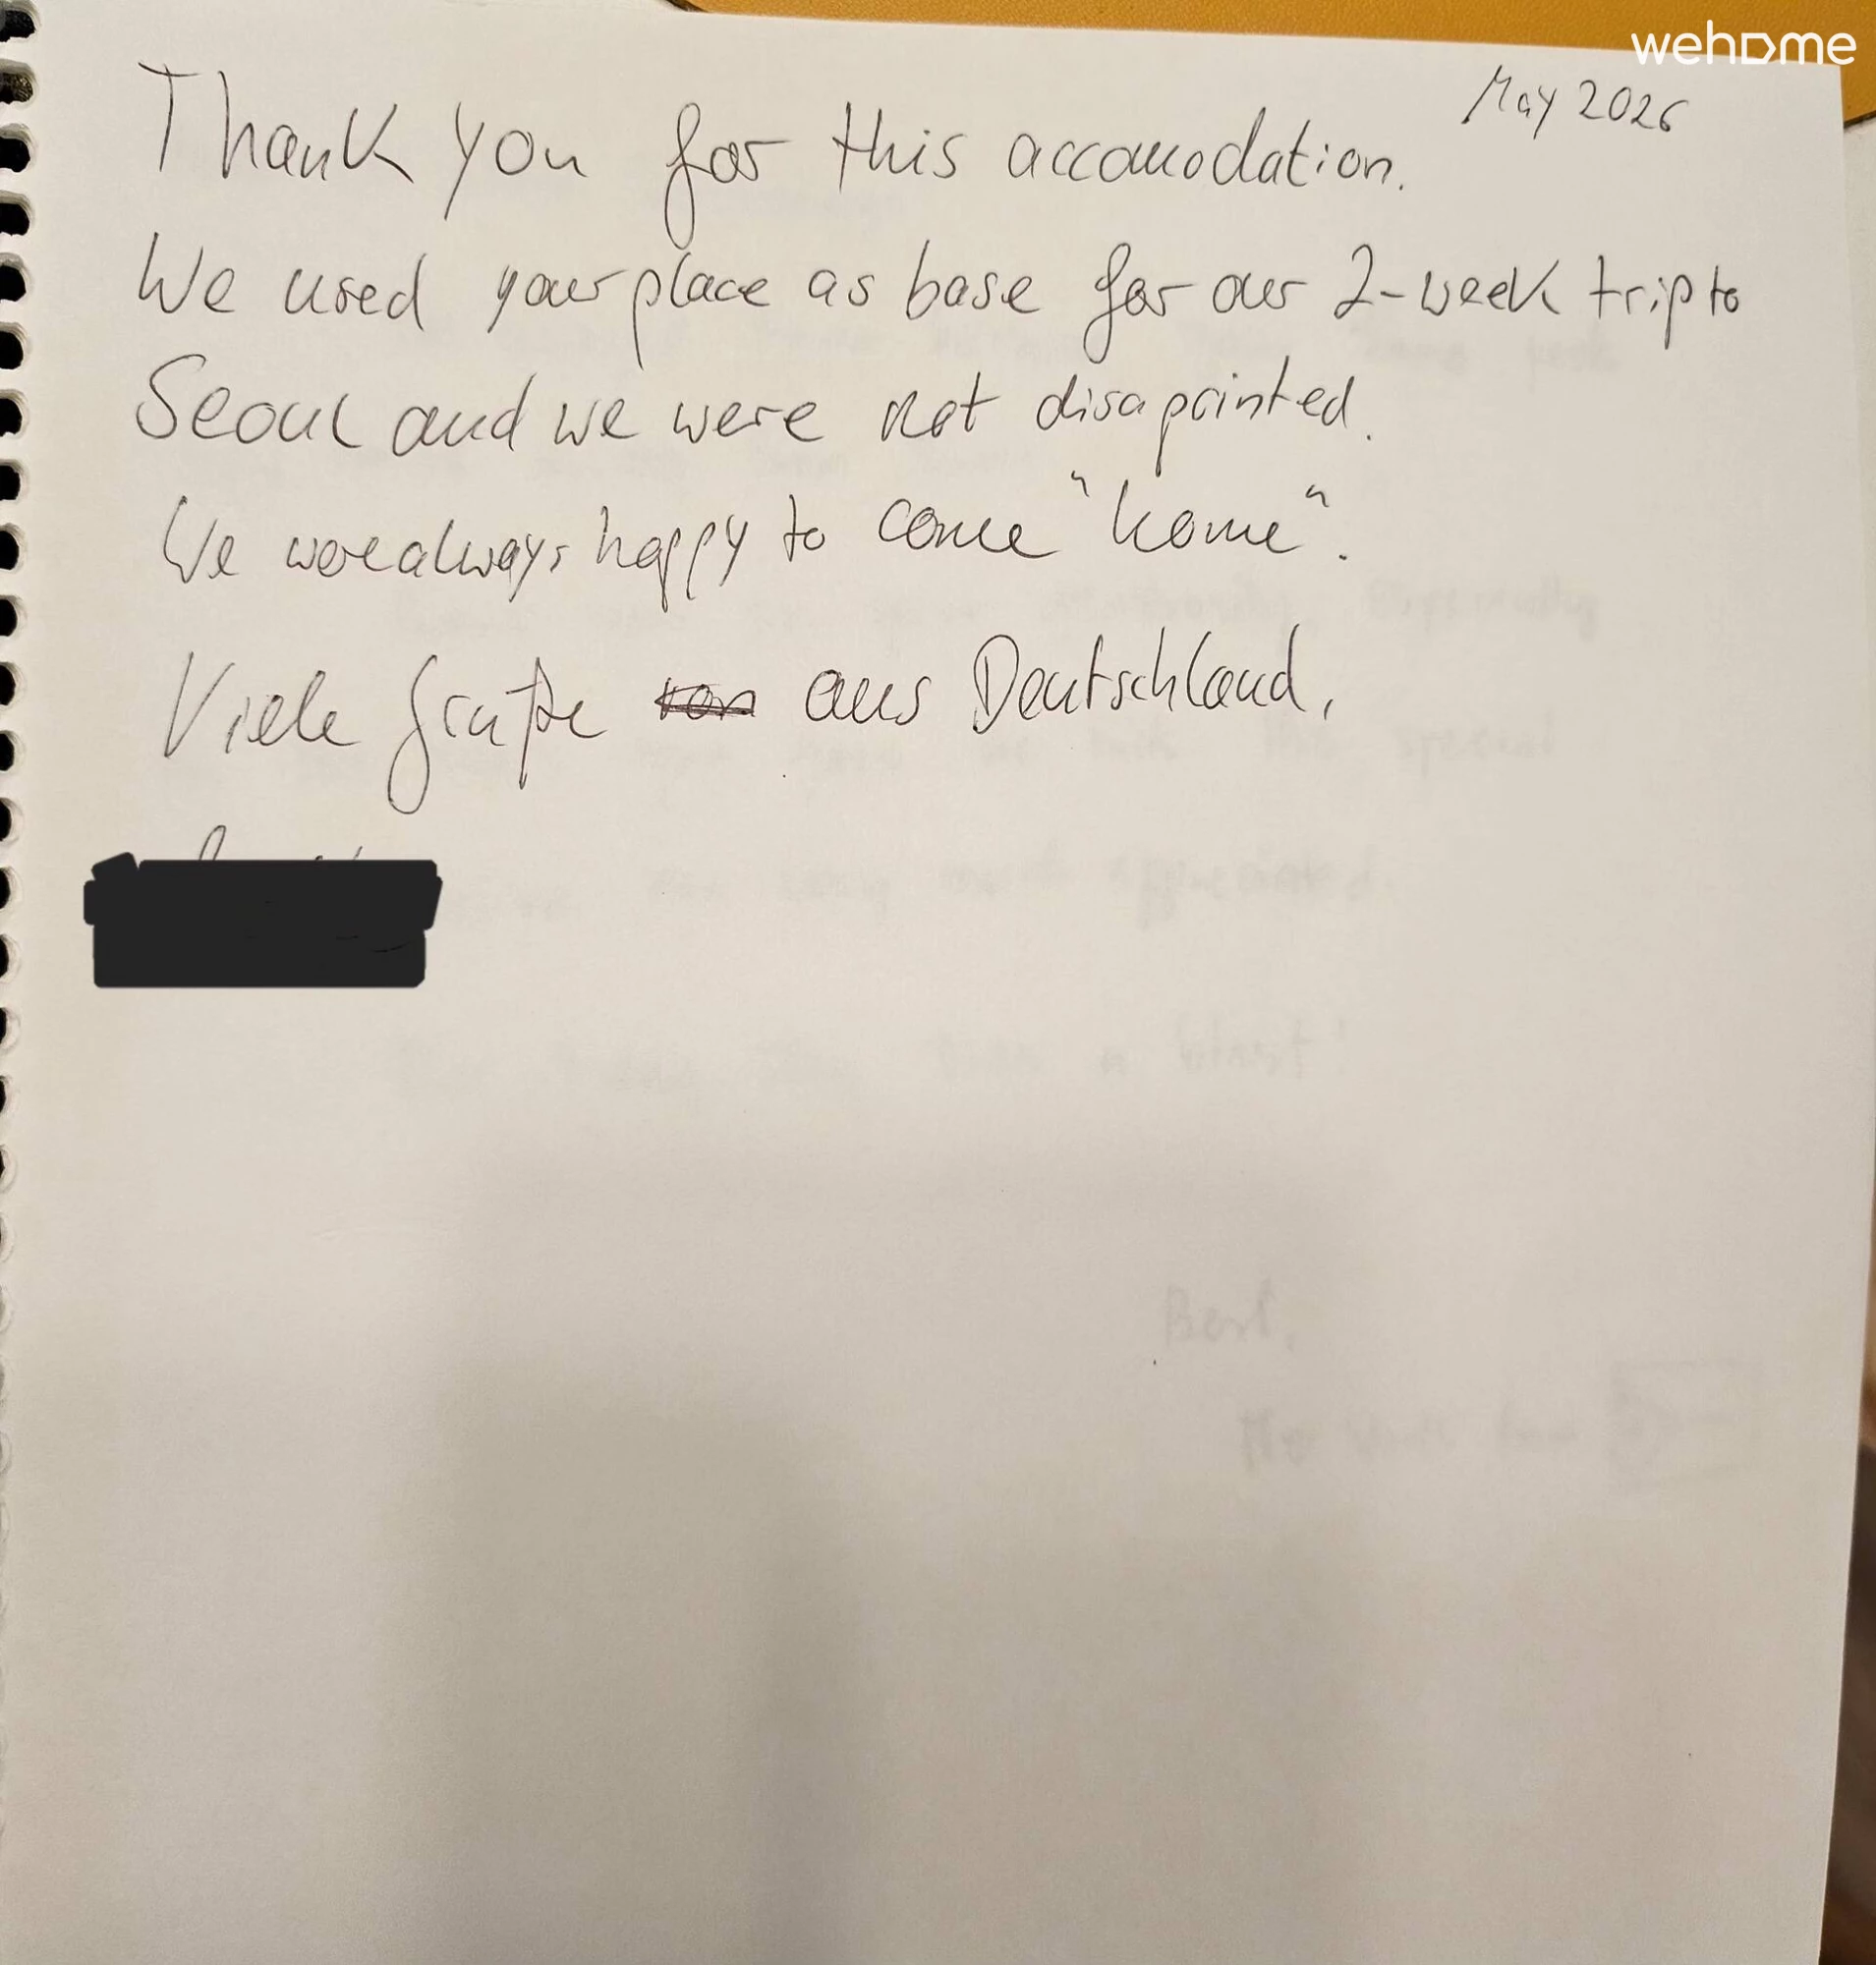 wehome
May 2026
Thank you for this accomodation.
We used your place as base for our 2-week trip to
Seoul and we were not disapointed.
We were always happy to come "home".
Viele Grüße von aus Deutschland,
Best,